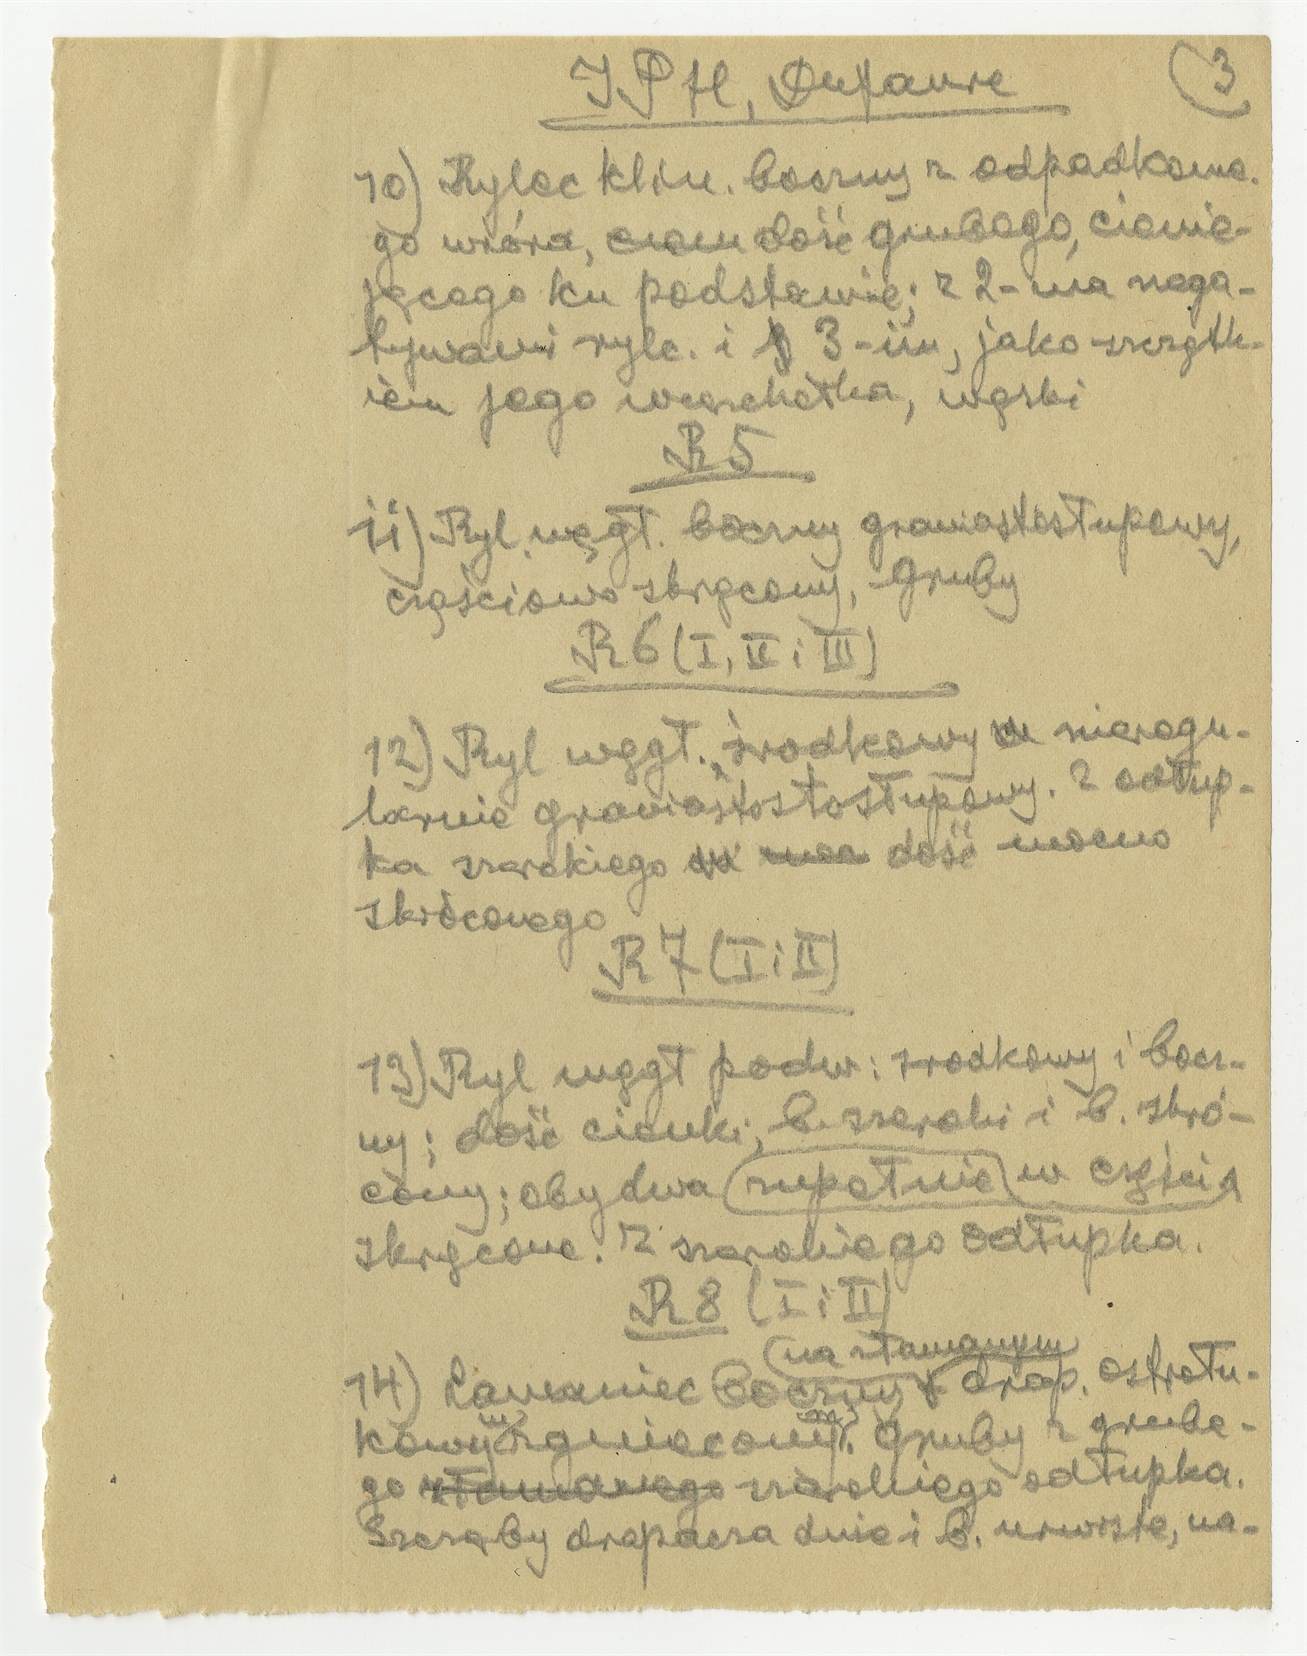 IPH, Dufaure
3
10) Rylec klin. boczny z odpadkowe-
go wióra, dość grubego, cienie-
jącego ku podstawie; z 2-ma nega-
tywami rylc. i 3-im, jako szczątk-
iem jego wierzchołka, wąski
R5
11) Ryl. węgł. boczny graniastosłupowy,
częściowo skręcony, gruby
R6 (I, II i III)
12) Ryl węgł., środkowy nieregu-
larnie graniastosłupowy. Z odłup-
ka szerokiego dość mocno
skróconego
R7 (I i II)
13) Ryl węgł podw: środkowy i bocz-
ny; dość cienki; b. szeroki i b. skró-
cony; obydwa zupełnie w części
skręcone. Z szerokiego odłupka.
R8 (I i II)
na złamanym
14) Łamaniec boczny drap. ostrołu-
kowym zgniecony. Gruby z grube-
go złamanego szerokiego odłupka.
Szczęby drapacza duże i b. urwiste, na-